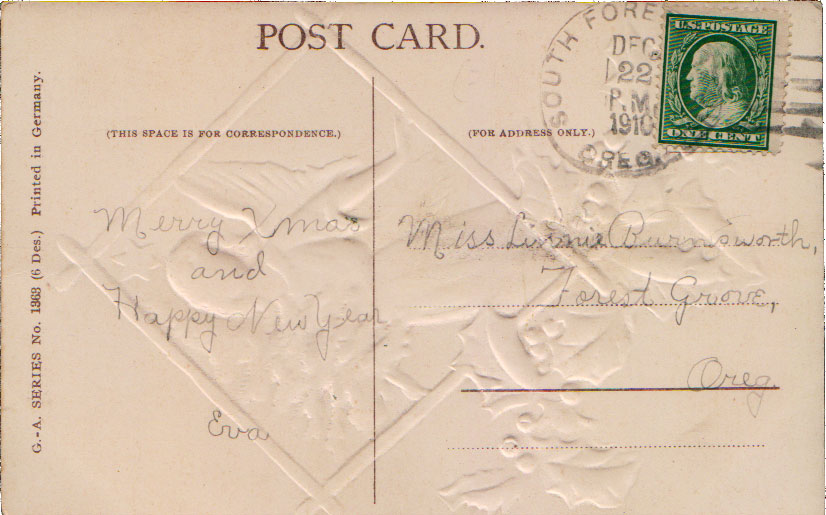 POST CARD.
SOUTH FORE
DEC
22
P.M.
1910
OREG.
U.S. POSTAGE
ONE CENT
(THIS SPACE IS FOR CORRESPONDENCE.)
(FOR ADDRESS ONLY.)
G.-A. SERIES No. 1363 (6 Des.) Printed in Germany.
Merry Xmas
and
Happy New Year
Eva
Miss Linnie Burnsworth,
Forest Grove,
Oreg.